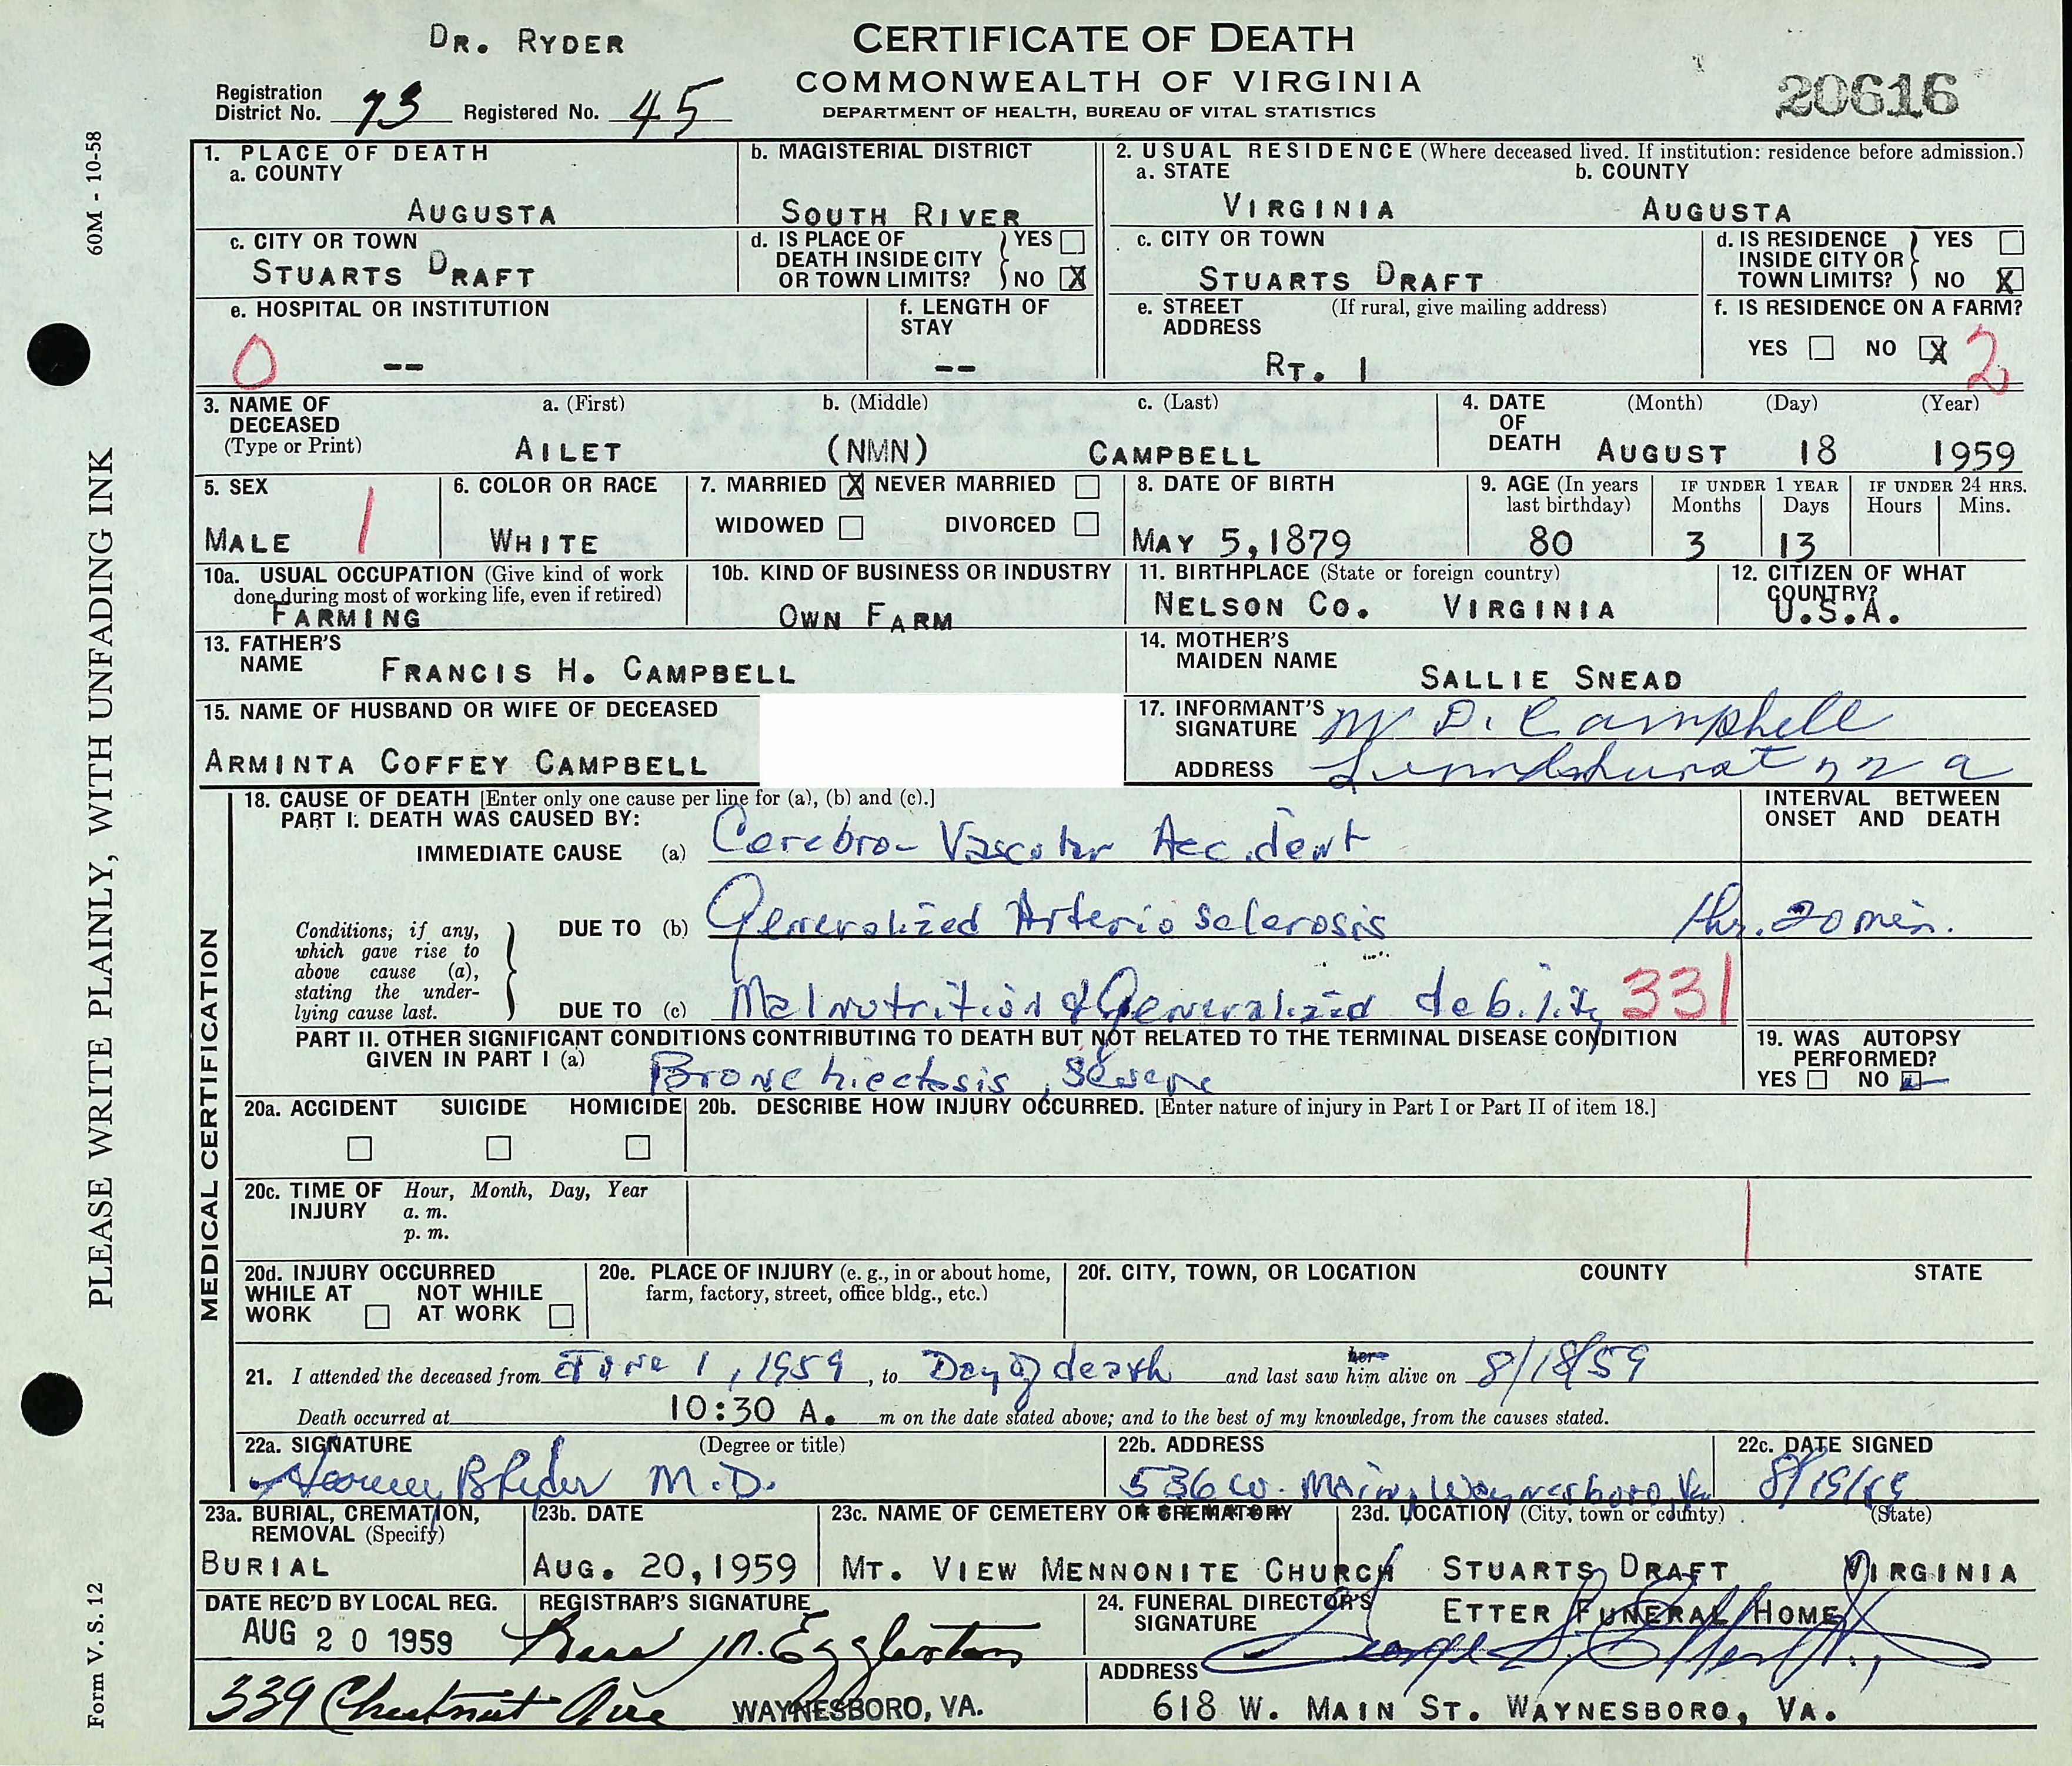 DR. RYDER
CERTIFICATE OF DEATH
COMMONWEALTH OF VIRGINIA
DEPARTMENT OF HEALTH, BUREAU OF VITAL STATISTICS
20616
Registration District No. 73 Registered No. 45
60M - 10-58
PLEASE WRITE PLAINLY, WITH UNFADING INK
Form V. S. 12
1. PLACE OF DEATH
a. COUNTY
AUGUSTA
b. MAGISTERIAL DISTRICT
SOUTH RIVER
2. USUAL RESIDENCE (Where deceased lived. If institution: residence before admission.)
a. STATE
VIRGINIA
b. COUNTY
AUGUSTA
c. CITY OR TOWN
STUARTS DRAFT
d. IS PLACE OF DEATH INSIDE CITY OR TOWN LIMITS? YES NO X
c. CITY OR TOWN
STUARTS DRAFT
d. IS RESIDENCE INSIDE CITY OR TOWN LIMITS? YES NO X
e. HOSPITAL OR INSTITUTION
0 --
f. LENGTH OF STAY
--
e. STREET ADDRESS (If rural, give mailing address)
RT. 1
f. IS RESIDENCE ON A FARM?
YES NO X 2
3. NAME OF DECEASED (Type or Print)
a. (First) b. (Middle) c. (Last)
AILET (NMN) CAMPBELL
4. DATE OF DEATH (Month) (Day) (Year)
AUGUST 18 1959
5. SEX
MALE 1
6. COLOR OR RACE
WHITE
7. MARRIED X NEVER MARRIED
WIDOWED DIVORCED
8. DATE OF BIRTH
MAY 5, 1879
9. AGE (In years last birthday)
80
IF UNDER 1 YEAR
Months Days
3 13
IF UNDER 24 HRS.
Hours Mins.
10a. USUAL OCCUPATION (Give kind of work done during most of working life, even if retired)
FARMING
10b. KIND OF BUSINESS OR INDUSTRY
OWN FARM
11. BIRTHPLACE (State or foreign country)
NELSON CO. VIRGINIA
12. CITIZEN OF WHAT COUNTRY?
U.S.A.
13. FATHER'S NAME
FRANCIS H. CAMPBELL
14. MOTHER'S MAIDEN NAME
SALLIE SNEAD
15. NAME OF HUSBAND OR WIFE OF DECEASED
ARMINTA COFFEY CAMPBELL
17. INFORMANT'S SIGNATURE M D. Campbell
ADDRESS
MEDICAL CERTIFICATION
18. CAUSE OF DEATH [Enter only one cause per line for (a), (b) and (c).]
PART I. DEATH WAS CAUSED BY:
INTERVAL BETWEEN ONSET AND DEATH
IMMEDIATE CAUSE (a) Cerebro-Vascular Accident
Conditions, if any, which gave rise to above cause (a), stating the underlying cause last.
DUE TO (b) Generalized Arterio sclerosis
1hr. 20 min.
DUE TO (c) Malnutrition & Generalized debility 331
PART II. OTHER SIGNIFICANT CONDITIONS CONTRIBUTING TO DEATH BUT NOT RELATED TO THE TERMINAL DISEASE CONDITION GIVEN IN PART I (a)
Bronchiectosis, Severe
19. WAS AUTOPSY PERFORMED?
YES NO
20a. ACCIDENT SUICIDE HOMICIDE
20b. DESCRIBE HOW INJURY OCCURRED. [Enter nature of injury in Part I or Part II of item 18.]
20c. TIME OF INJURY Hour, Month, Day, Year
a. m.
p. m.
20d. INJURY OCCURRED
WHILE AT WORK NOT WHILE AT WORK
20e. PLACE OF INJURY (e. g., in or about home, farm, factory, street, office bldg., etc.)
20f. CITY, TOWN, OR LOCATION COUNTY STATE
21. I attended the deceased from June 1, 1959, to Day of death and last saw him alive on 8/18/59
Death occurred at 10:30 A. m on the date stated above; and to the best of my knowledge, from the causes stated.
22a. SIGNATURE (Degree or title)
Ryder M.D.
22b. ADDRESS
536 W. Main, Waynesboro, Va
22c. DATE SIGNED
8/19/59
23a. BURIAL, CREMATION, REMOVAL (Specify)
BURIAL
23b. DATE
AUG. 20, 1959
23c. NAME OF CEMETERY OR CREMATORY
MT. VIEW MENNONITE CHURCH
23d. LOCATION (City, town or county) (State)
STUARTS DRAFT VIRGINIA
DATE REC'D BY LOCAL REG.
AUG 20 1959
REGISTRAR'S SIGNATURE
M. Eggleston
339 Chestnut Ave WAYNESBORO, VA.
24. FUNERAL DIRECTOR'S SIGNATURE
ETTER FUNERAL HOME
ADDRESS
618 W. MAIN ST. WAYNESBORO, VA.